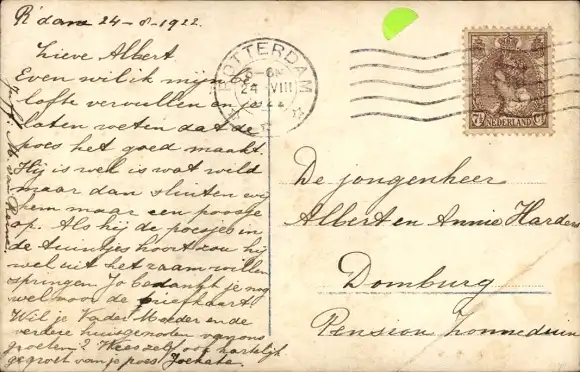 R'dam 24-8-1922.
Lieve Albert
Even wil ik mijn be
lofte vervullen en je
laten weten dat de
poes het goed maakt.
Hij is wel is wat wild
maar dan sluiten wij
hem maar een poosje
op. Als hij de poesjes in
de tuintjes hoort zou hij
wel uit het raam willen
springen. Jo bedankt je nog
wel voor de briefkaart.
Wil je Vader Moeder en de
verdere huisgenoten van ons
groeten? Wees zelf ook hartelijk
gegroet van je poes
ROTTERDAM
24 VIII
NEDERLAND
7½ Ct
De jongenheer
Albert en Annie Harders
Domburg
Pension Zonneduin